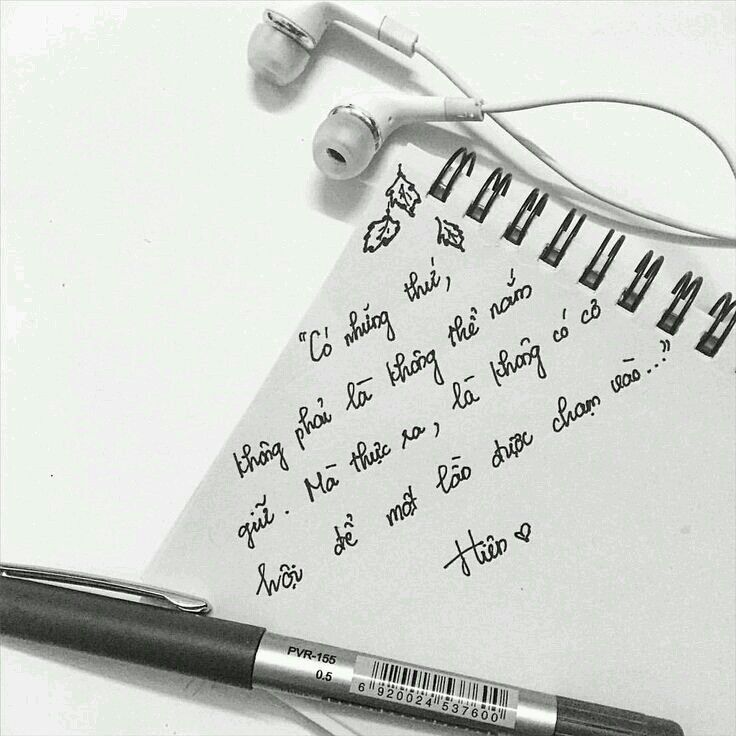 "Có những thứ,
không phải là không thể nắm
giữ. Mà thực ra, là không có cơ
hội để một lần được chạm vào..."
Hiên
PVR-155
0.5
6 920024 537600